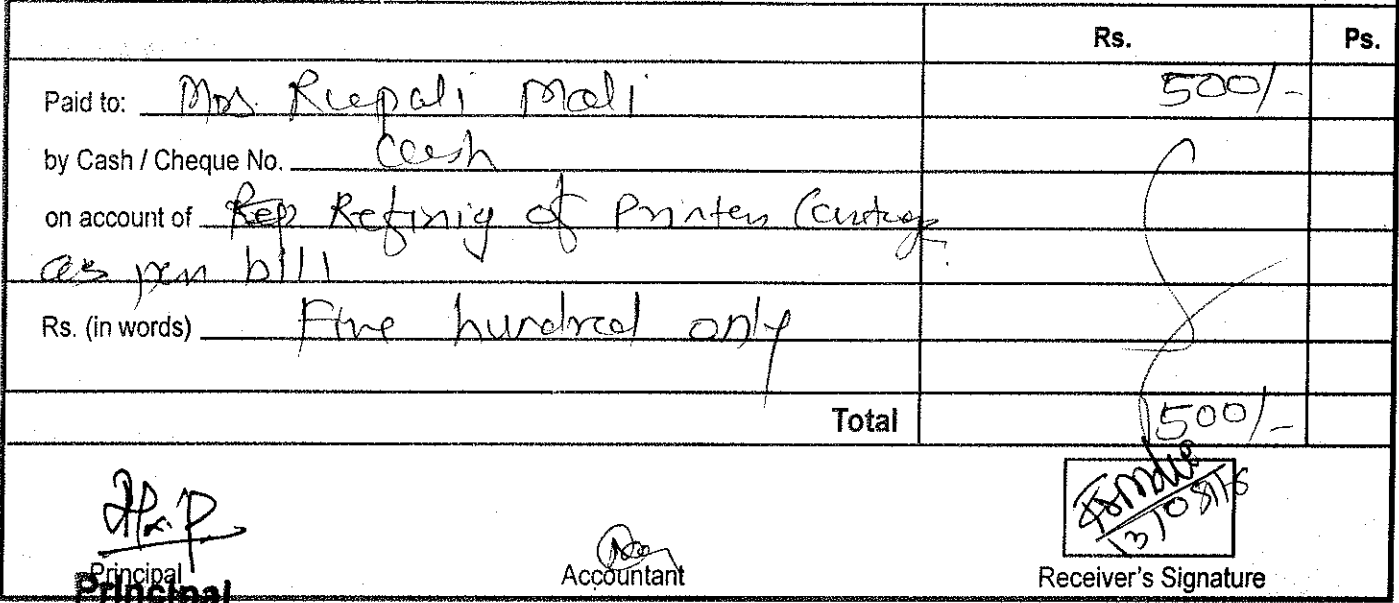 Rs. Ps.
Paid to: Mrs. Rupali Mali 500/-
by Cash / Cheque No. Cash
on account of Rep Refinig of Printer Cartrage
as per bill
Rs. (in words) Five hundred only
Total 500/-
13/08/16
Principal Accountant Receiver's Signature
Principal